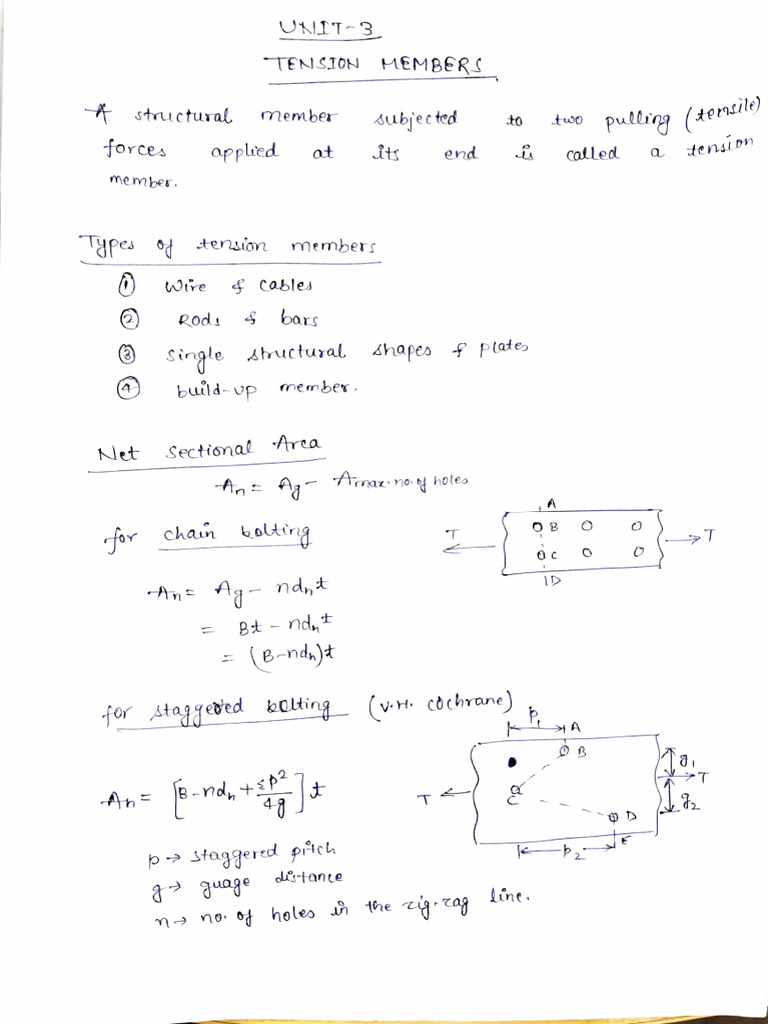 UNIT-3
TENSION MEMBERS
A structural member subjected to two pulling (tensile)
forces applied at its end is called a tension
member.
Types of tension members
① Wire & cables
② Rods & bars
③ Single structural shapes & plates
④ build-up member.
Net Sectional Area
An = Ag - Amax.no.of holes
for chain bolting
A
T B T
C
D
An = Ag - ndnt
= Bt - ndnt
= (B-ndn)t
for staggered bolting (V.H. Cochrane)
P1 A
B g1
An = [B-ndn + ΣP²/4g] t
T C T
g2
D
E
P2
p → staggered pitch
g → guage distance
n → no. of holes in the zig-zag line.